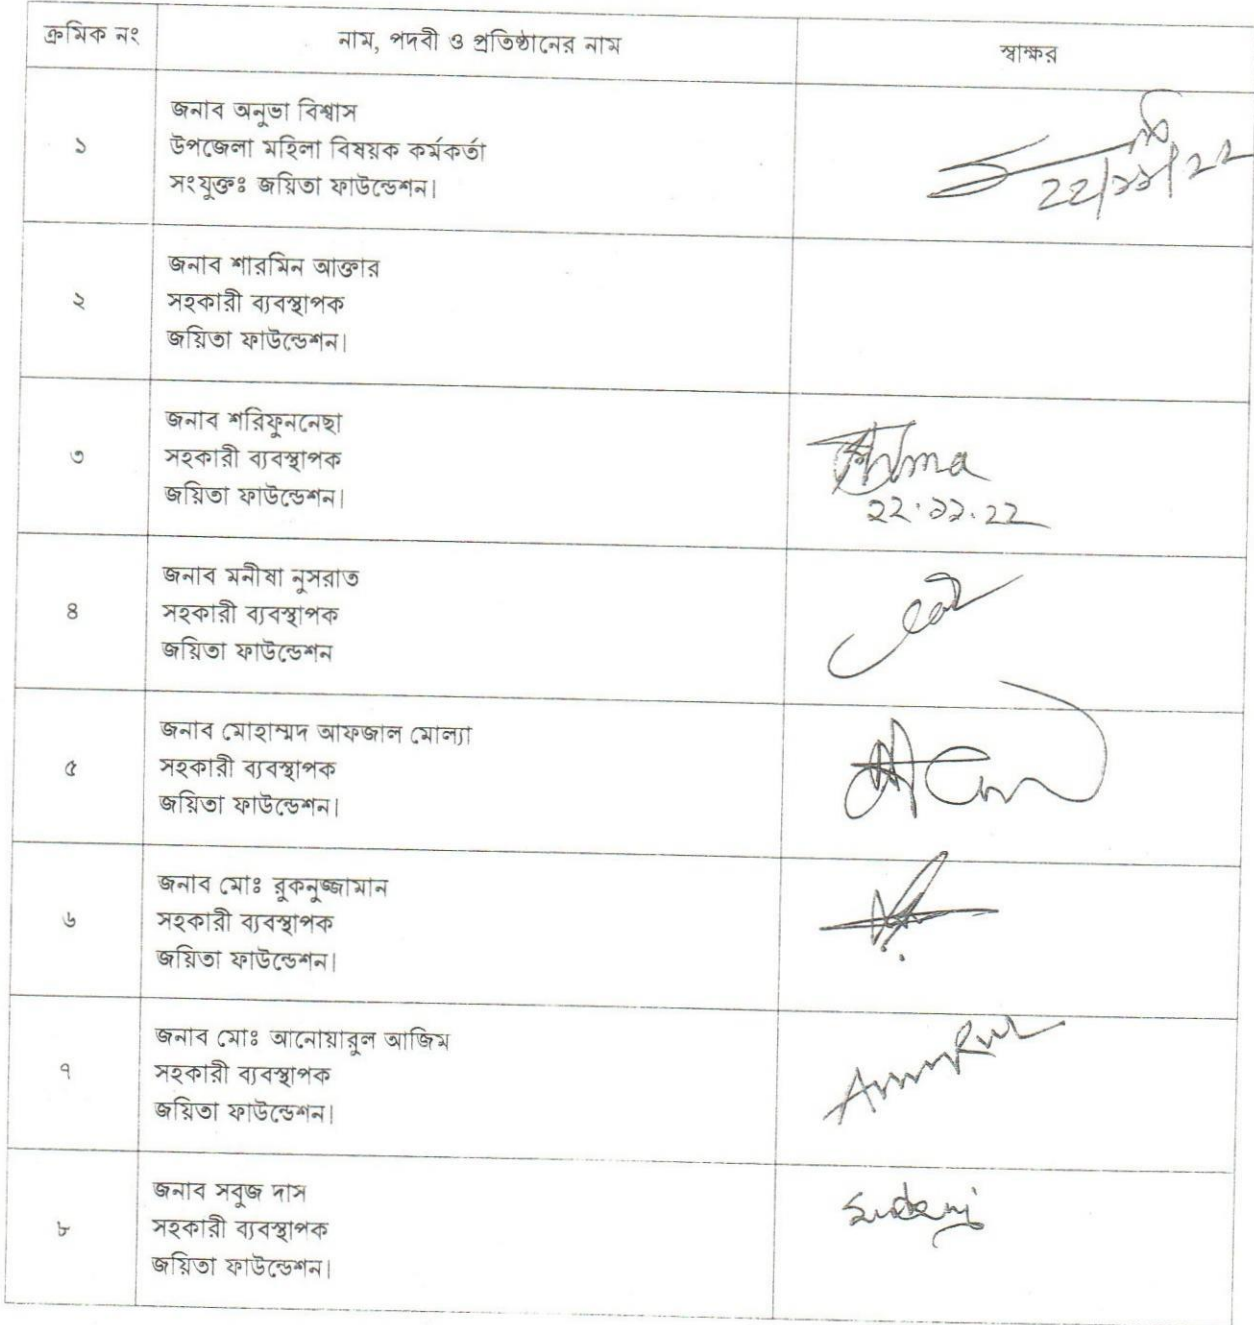 ক্রমিক নং
নাম, পদবী ও প্রতিষ্ঠানের নাম
স্বাক্ষর
১
জনাব অনুভা বিশ্বাস
উপজেলা মহিলা বিষয়ক কর্মকর্তা
সংযুক্তঃ জয়িতা ফাউন্ডেশন।
২২/১১/২২
২
জনাব শারমিন আক্তার
সহকারী ব্যবস্থাপক
জয়িতা ফাউন্ডেশন।
৩
জনাব শরিফুননেছা
সহকারী ব্যবস্থাপক
জয়িতা ফাউন্ডেশন।
২২.১১.২২
৪
জনাব মনীষা নুসরাত
সহকারী ব্যবস্থাপক
জয়িতা ফাউন্ডেশন
৫
জনাব মোহাম্মদ আফজাল মোল্যা
সহকারী ব্যবস্থাপক
জয়িতা ফাউন্ডেশন।
৬
জনাব মোঃ রুকনুজ্জামান
সহকারী ব্যবস্থাপক
জয়িতা ফাউন্ডেশন।
৭
জনাব মোঃ আনোয়ারুল আজিম
সহকারী ব্যবস্থাপক
জয়িতা ফাউন্ডেশন।
৮
জনাব সবুজ দাস
সহকারী ব্যবস্থাপক
জয়িতা ফাউন্ডেশন।